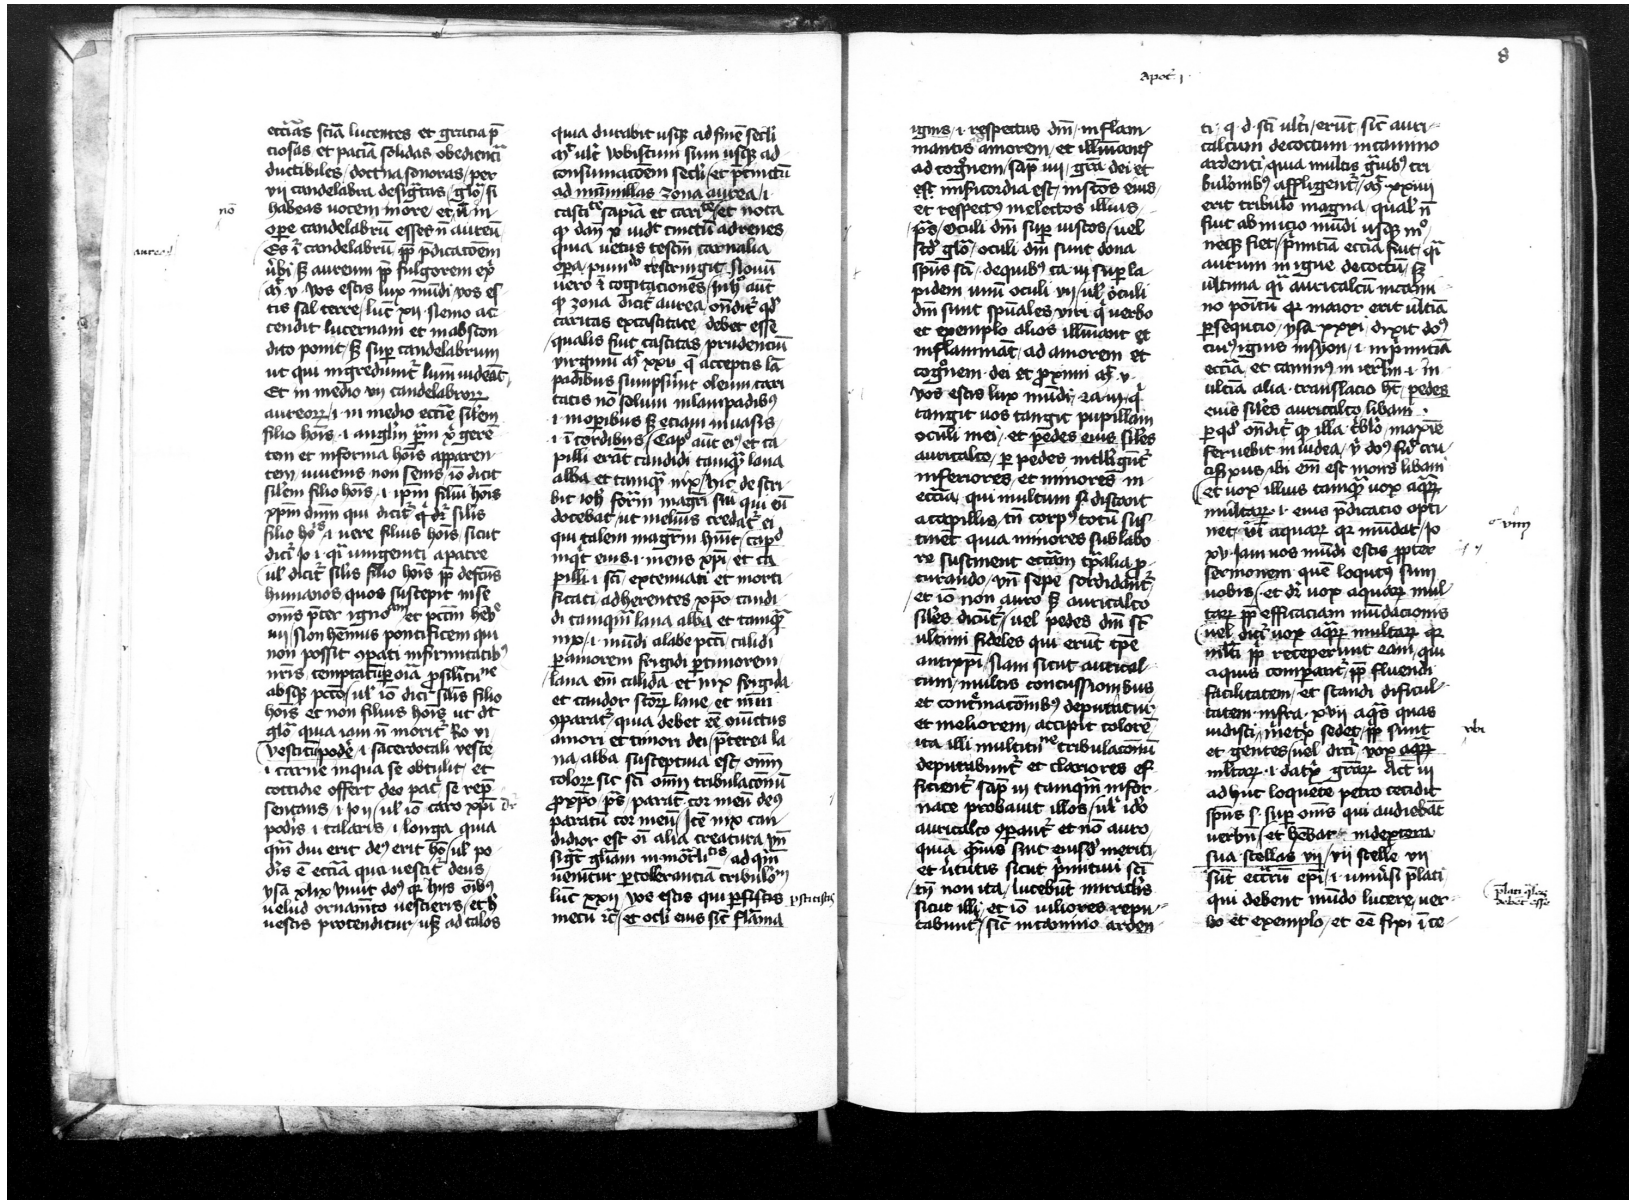 eccīas sciā lucentes et gracia p̄
ciosas et paciā solidas obediencia
ductibiles / doct'na sonoras / per
vii candelabra designatas / glo' si
habeas vocem in ore et nō in
nō
opere candelabrū esses nō aureū
Es igitur candelabrū pp̄ p̄dicacōem
aureū
v'bi sʒ aureum pp̄ fulgorem
mͬ v vos estis lux mūdi vos es
tis sal terre / luc̄ xii Nemo ac
cendit lucernam et in abscon
dito ponit sʒ sup candelabrum
ut qui ingrediunt' lum videāt
Et in medio vii candelabrorꝝ
aureorꝝ / i in medio ecc̄ie sil'em
filio hoīs i angl'm
tem et in forma hoīs apparen
tem / iuvenis non senis iō dicit
sil'em filio hoīs i ip̄m filiū hoīs
xp̄m dn̄m qui dicit' silis
filio hoīs i vere filius hoīs sicut
dicit' Jo i unigeniti a patre
ul' dicit' silis filio hoīs pp̄ defc̄us
humanos quos suscepit in se
om̄s p̄ter ignoranciam et pcc̄m heb
iiii / Non hēmus pontificem qui
non possit ꝯpati infirmitatibꝰ
nr̄is temptatū per oīa pro similitudine
absqꝫ pcc̄o / ul' iō dicit' silis filio
hoīs et non filius hoīs ut dt
glo' quia iam nō morit' Ro vi
vestitū podere i sacerdotali veste
i carne in qua se obtulit et
cottidie offert deo pat' se rep̄
sentans / ul' iō caro xp̄i dr
poderis i talaris i longa quia
qm̄ diu erit deꝰ erit hō / ul' po
deris ē ecc̄ia qua vestit' deus
ysa xlix vivit doꝰ qr hiis oībꝰ
velud ornamēto vestieris / et h
vestis protenditur usqꝫ ad talos
quia durabit usqꝫ ad finē sec̄li
mͬ ult' vobiscum sum usqꝫ ad
consumacōem sec̄li / et p̄cinctū
ad māmillas zona aurea / i
castitate sapīa et caritate / et nota
qͣ dan x vidt cinctū ad renes
quia vetus testm̄ carnalia
opera puniendo restringit Novū
vero ī cogitaciones / in hͦ aūt
qͣ zona dicit' aurea ondit' qd
caritas ex castitate debet esse
qualis fuit castitas prudencium
virginū mͬ xxv q̄ acceptis lā
padibus sumpserūt oleum cari
tatis nō solum in lampadibꝰ
i in operibus sʒ etiam in vasis
i ī cordibus / Caput aūt eiꝰ et ca
pilli erāt candidi tamqͣ lana
alba et tamqͣ nix / hic descri
bit ioh formā magr̄i sui qui eū
docebat / ut melius credat' ei
qui talem magr̄m hūit / caput
inqͣt eius i mens xp̄i et ca
pilli i scī extenuati et morti
ficati adherentes xp̄o candi
di tamqͣm lana alba et tamqͣ
nix / i mūdi a labe pcc̄i calidi
per amorem frigidi per timorem
lana em̄ calida et nix frigida
et candor scorꝝ lane et nivi
ꝯparat' quia debet eē coniūctus
amori et timori dei / p̄terea la
na alba susceptiva est omniū
colorꝝ sic scī omniū tribulacōnū
pro xp̄o ps̄ paratū cor meū deꝰ
paratū cor meū / Itē nix can
didior est oī alia creatura
sigt' gl̄iam immortalitatis ad qͣm
venitur per toleranciā tribulōm
luc̄ xxii vos estis qui per sistis p̄stitistis
mecū rc̄ / et oculi eius sic̄ flāma
Apoc̄ i
8
ignis i respectus dni inflam
mantis amorem et illuīantis
ad cogniōem / sap iiii grā dei et
est misericordia est in scōs eius
et respectꝰ in electos illius
ps̄ Oculi dni sup iustos / vel
scd' glo' oculi dni sunt dona
spūs scī de quibus za iii sup la
pidem unū oculi vii / ul' oculi
dni sunt spūales viri qͥ verbo
et exemplo alios illuīant et
inflammāt ad amorem et
cogniōem dei et proximi mͬ v
vos estis lux mūdi / za ii qͥ
tangit vos tangit pupillam
oculi mei / et pedes eius siles
auricalco / per pedes intelligūt'
inferiores et minores in
ecc̄ia qui multum distant
a capillis tn̄ corpꝰ totū sus
tinēt quia minores sub labo
re sustinent ecc̄iam tp̄alia pro
curando / vn̄ sepe sordidant'
et iō non auro sʒ auricalco
siles dicūt' / vel pedes dni st
ultimi fideles qui erūt tp̄e
antixp̄i / Nam sicut aurical
cum / multis concussionibus
et conc'macōnibus deputatur
et meliorem accipit colorē
ita illi multitudine tribulacōnū
deputabunt' et clariores ef
ficient' sap iii tamqͣm in for
nace probavit illos / ul' ido
auricalco ꝯparāt' et nō auro
quia quīs sint eiusdē meriti
et v'tutis sicut p̄mitivi scī
tn̄ non ita lucebūt miraclis
sicut illi et iō viliores repu
tabunt' / sic̄ in camino arden
ti q d scī ulti erūt sic̄ auri
calcum decoctum in camino
ardenti / quia multis gͣvibꝰ tri
bulōnibꝰ affligent' mͬ xxiiii
erit tribulō magna qual' n̄
fuit ab inicio mūdi usqꝫ mo
neqꝫ fiet / p̄mitiva ecc̄ia fuit qͣ
aurum in igne decoctū / sʒ
ultima qͣ auricalcū in cami
no ponitū qr maior erit ultia
persequtio / ysa xxxi dixit doꝰ
cuiꝰ ignis in syon / i in p̄mitia
ecc̄ia et caminꝰ in ierl'm i in
ultia alia translacio ht pedes
eius siles auricalco libani
per qd ondit' qͣ illa t'bulō maxie
fervebit in iudea / v' doꝰ fu' cru
cifixus ibi em̄ est mons libani
et vox illius tamqͣ vox aqͣrꝝ
multarꝝ i eius p̄dicatio opti
net vim aquarꝝ qr mūdat / Jo
xv Iam vos mūdi estis propter
sermonem quē loqutꝰ sum
vobis / et dr̄ vox aquarꝝ mul
tarꝝ pp̄ efficaciam mūdacionis
vel dicit' vox aqͣrꝝ multarꝝ qr
multi pp̄li receperunt eam / qui
aquis comparant' pp̄ fluendi
facilitatem et standi dificul
tatem infra xvii aqͣs quas
vidisti / m'etrix sedet pp̄li sunt
ubi
et gentes / vel dicit' vox aqͣrꝝ
mltarꝝ i datrix grārꝝ Act iii
ad huc loquēte petro cecidit
spūs s sup om̄s qui audiebāt
verbū / et hēbat in dextera
sua stellas vii / vii stelle vii
sūt ecc̄iarū ep̄i i univ'si p̄lati
p̄lati qͣles
debēt esse
qui debent mūdo lucere ver
bo et exemplo / et eē fixi ī ce